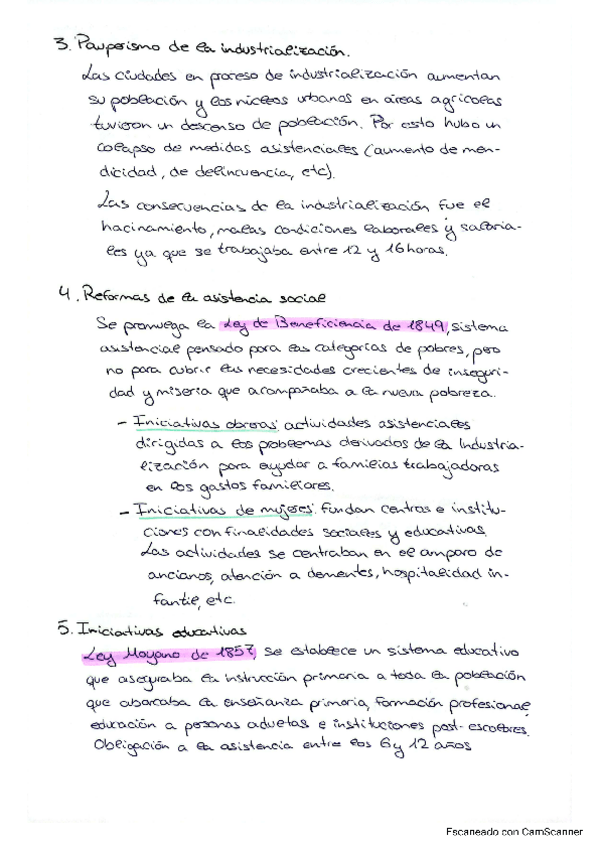 3. Pauperismo de la industrialización.
Las ciudades en proceso de industrialización aumentan
su población y los núcleos urbanos en áreas agrícolas
tuvieron un descenso de población. Por esto hubo un
colapso de medidas asistenciales (aumento de men-
dicidad, de delincuencia, etc).
Las consecuencias de la industrialización fue el
hacinamiento, malas condiciones laborales y salaria-
les ya que se trabajaba entre 12 y 16 horas.
4. Reformas de la asistencia social
Se promulga la Ley de Beneficiencia de 1849, sistema
asistencial pensado para las categorías de pobres, pero
no para cubrir las necesidades crecientes de inseguri-
dad y miseria que acompañaba a la nueva pobreza.
- Iniciativas obreras: actividades asistenciales
dirigidas a los problemas derivados de la Industria-
lización para ayudar a familias trabajadoras
en los gastos familiares.
- Iniciativas de mujeres: fundan centros e institu-
ciones con finalidades sociales y educativas.
Las actividades se centraban en el amparo de
ancianos, atención a dementes, hospitalidad in-
fantil, etc.
5. Iniciativas educativas
Ley Moyano de 1857, se establece un sistema educativo
que aseguraba la instrucción primaria a toda la población
que abarcaba la enseñanza primaria, formación profesional,
educación a personas adultas e instituciones post-escolares.
Obligación a la asistencia entre los 6 y 12 años
Escaneado con CamScanner